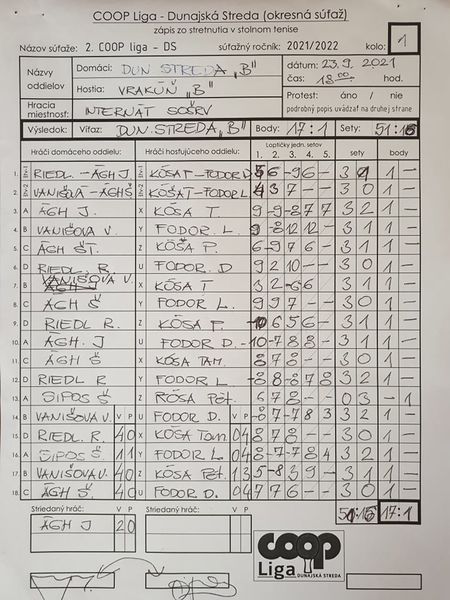 COOP Liga - Dunajská Streda (okresná súťaž)
zápis zo stretnutia v stolnom tenise
Názov súťaže: 2. COOP liga - DS súťažný ročník: 2021/2022 kolo: 1
Názvy oddielov
Domáci: DUN STREDA „B"
Hostia: VRAKÚŇ „B"
dátum: 23.9.2021
čas: 18 00 hod.
Hracia miestnosť: INTERNÁT SOŠRV
Protest: áno / nie
podrobný popis uvádzať na druhej strane
Výsledok: Víťaz: DUN. STREDA „B" Body: 17:1 Sety: 51:16
Hráči domáceho oddielu: Hráči hosťujúceho oddielu: Loptičky jedn. setov sety body
1. 2. 3. 4. 5.
1. RIEDL - ÁGH J. KÓSA T - FODOR D 6 -9 6 - - 3 1 1 -
2. VANIŠOVÁ - ÁGH Š KÓSA T - FODOR L. 3 7 - - 3 0 1 -
3. A ÁGH J. X KÓSA T. 9 -9 -8 7 7 3 2 1 -
4. B VANIŠOVÁ V. Y FODOR L. 9 -8 12 12 - 3 1 1 -
5. C ÁGH ŠT. Z KÓŠA P. 6 -9 7 6 - 3 1 1 -
6. D RIEDL R. U FODOR D 9 2 10 - - 3 0 1 -
7. B VANIŠOVÁ V. X KÓSA T 3 2 -6 6 3 1 1 -
8. C ÁGH Š Y FODOR L. 9 9 7 - - 3 0 1 -
9. D RIEDL R. Z KÓSA P. 6 5 6 - 3 1 1 -
10. A ÁGH. J U FODOR D. -10 -7 8 8 - 3 1 1 -
11. C ÁGH Š X KÓSA TAM. 8 7 8 - - 3 0 1 -
12. D RIEDL R Y FODOR L -8 8 -8 7 8 3 2 1 -
13. A SIPOS Š Z KÓSA Pét. 6 7 8 - - 0 3 - 1
14. B VANIŠOVÁ V. V P U FODOR D. V P -8 7 -7 8 3 3 2 1 -
15. D RIEDL. R. 4 0 X KÓSA Tam. 0 4 8 7 8 - - 3 0 1 -
16. A SIPOS Š 1 1 Y FODOR L. 0 4 8 -7 -7 8 4 3 2 1 -
17. B VANIŠOVÁ V. 4 0 Z KÓSA Pét. 1 3 5 -8 3 9 - 3 1 1 -
18. C ÁGH Š. 4 0 U FODOR D. 0 4 7 7 6 - - 3 0 1 -
Striedaný hráč: V P Striedaný hráč: V P 51:16 17:1
ÁGH J 2 0
coop
Liga DUNAJSKÁ STREDA